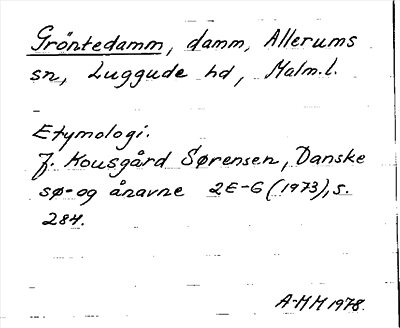 Gröntedamm, damm, Allerums
sn, Luggude hd, Malm.l.
Etymologi.
J. Kousgård Sørensen, Danske
sø- og ånavne 2E-G (1973), s.
284.
A-MM 1978.